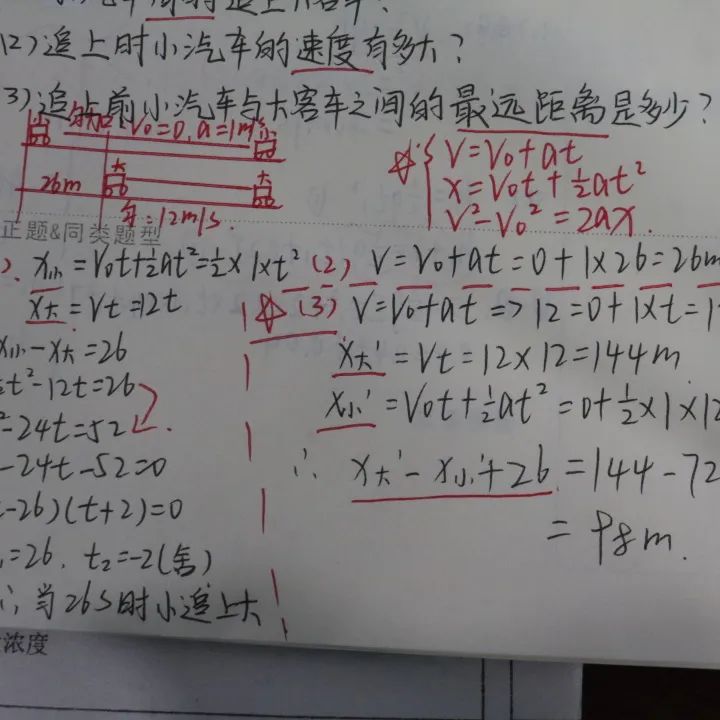 的追上大客车?
(2)追上时小汽车的速度有多大?
3)追上前小汽车与大客车之间的最远距离是多少?
V₀=0, a=1m/s
小
小
26m
大
大
车=12m/s.
V=V₀+at
x=V₀t+½at²
V²-V₀²=2ax.
正题&同类题型
). x小=V₀t+½at²=½×1×t²
x大=Vt=12t
x小-x大=26
t²-12t=26
²-24t=52
-24t-52=0
-26)(t+2)=0
=26, t₂=-2(舍)
∴当26s时小追上大
(2) V=V₀+at=0+1×26=26m
(3) V=V₀+at=>12=0+1×t=1
x大'=Vt=12×12=144m
x小'=V₀t+½at²=0+½×1×12
∴ x大'-x小'+26=144-72
=98m.
浓度